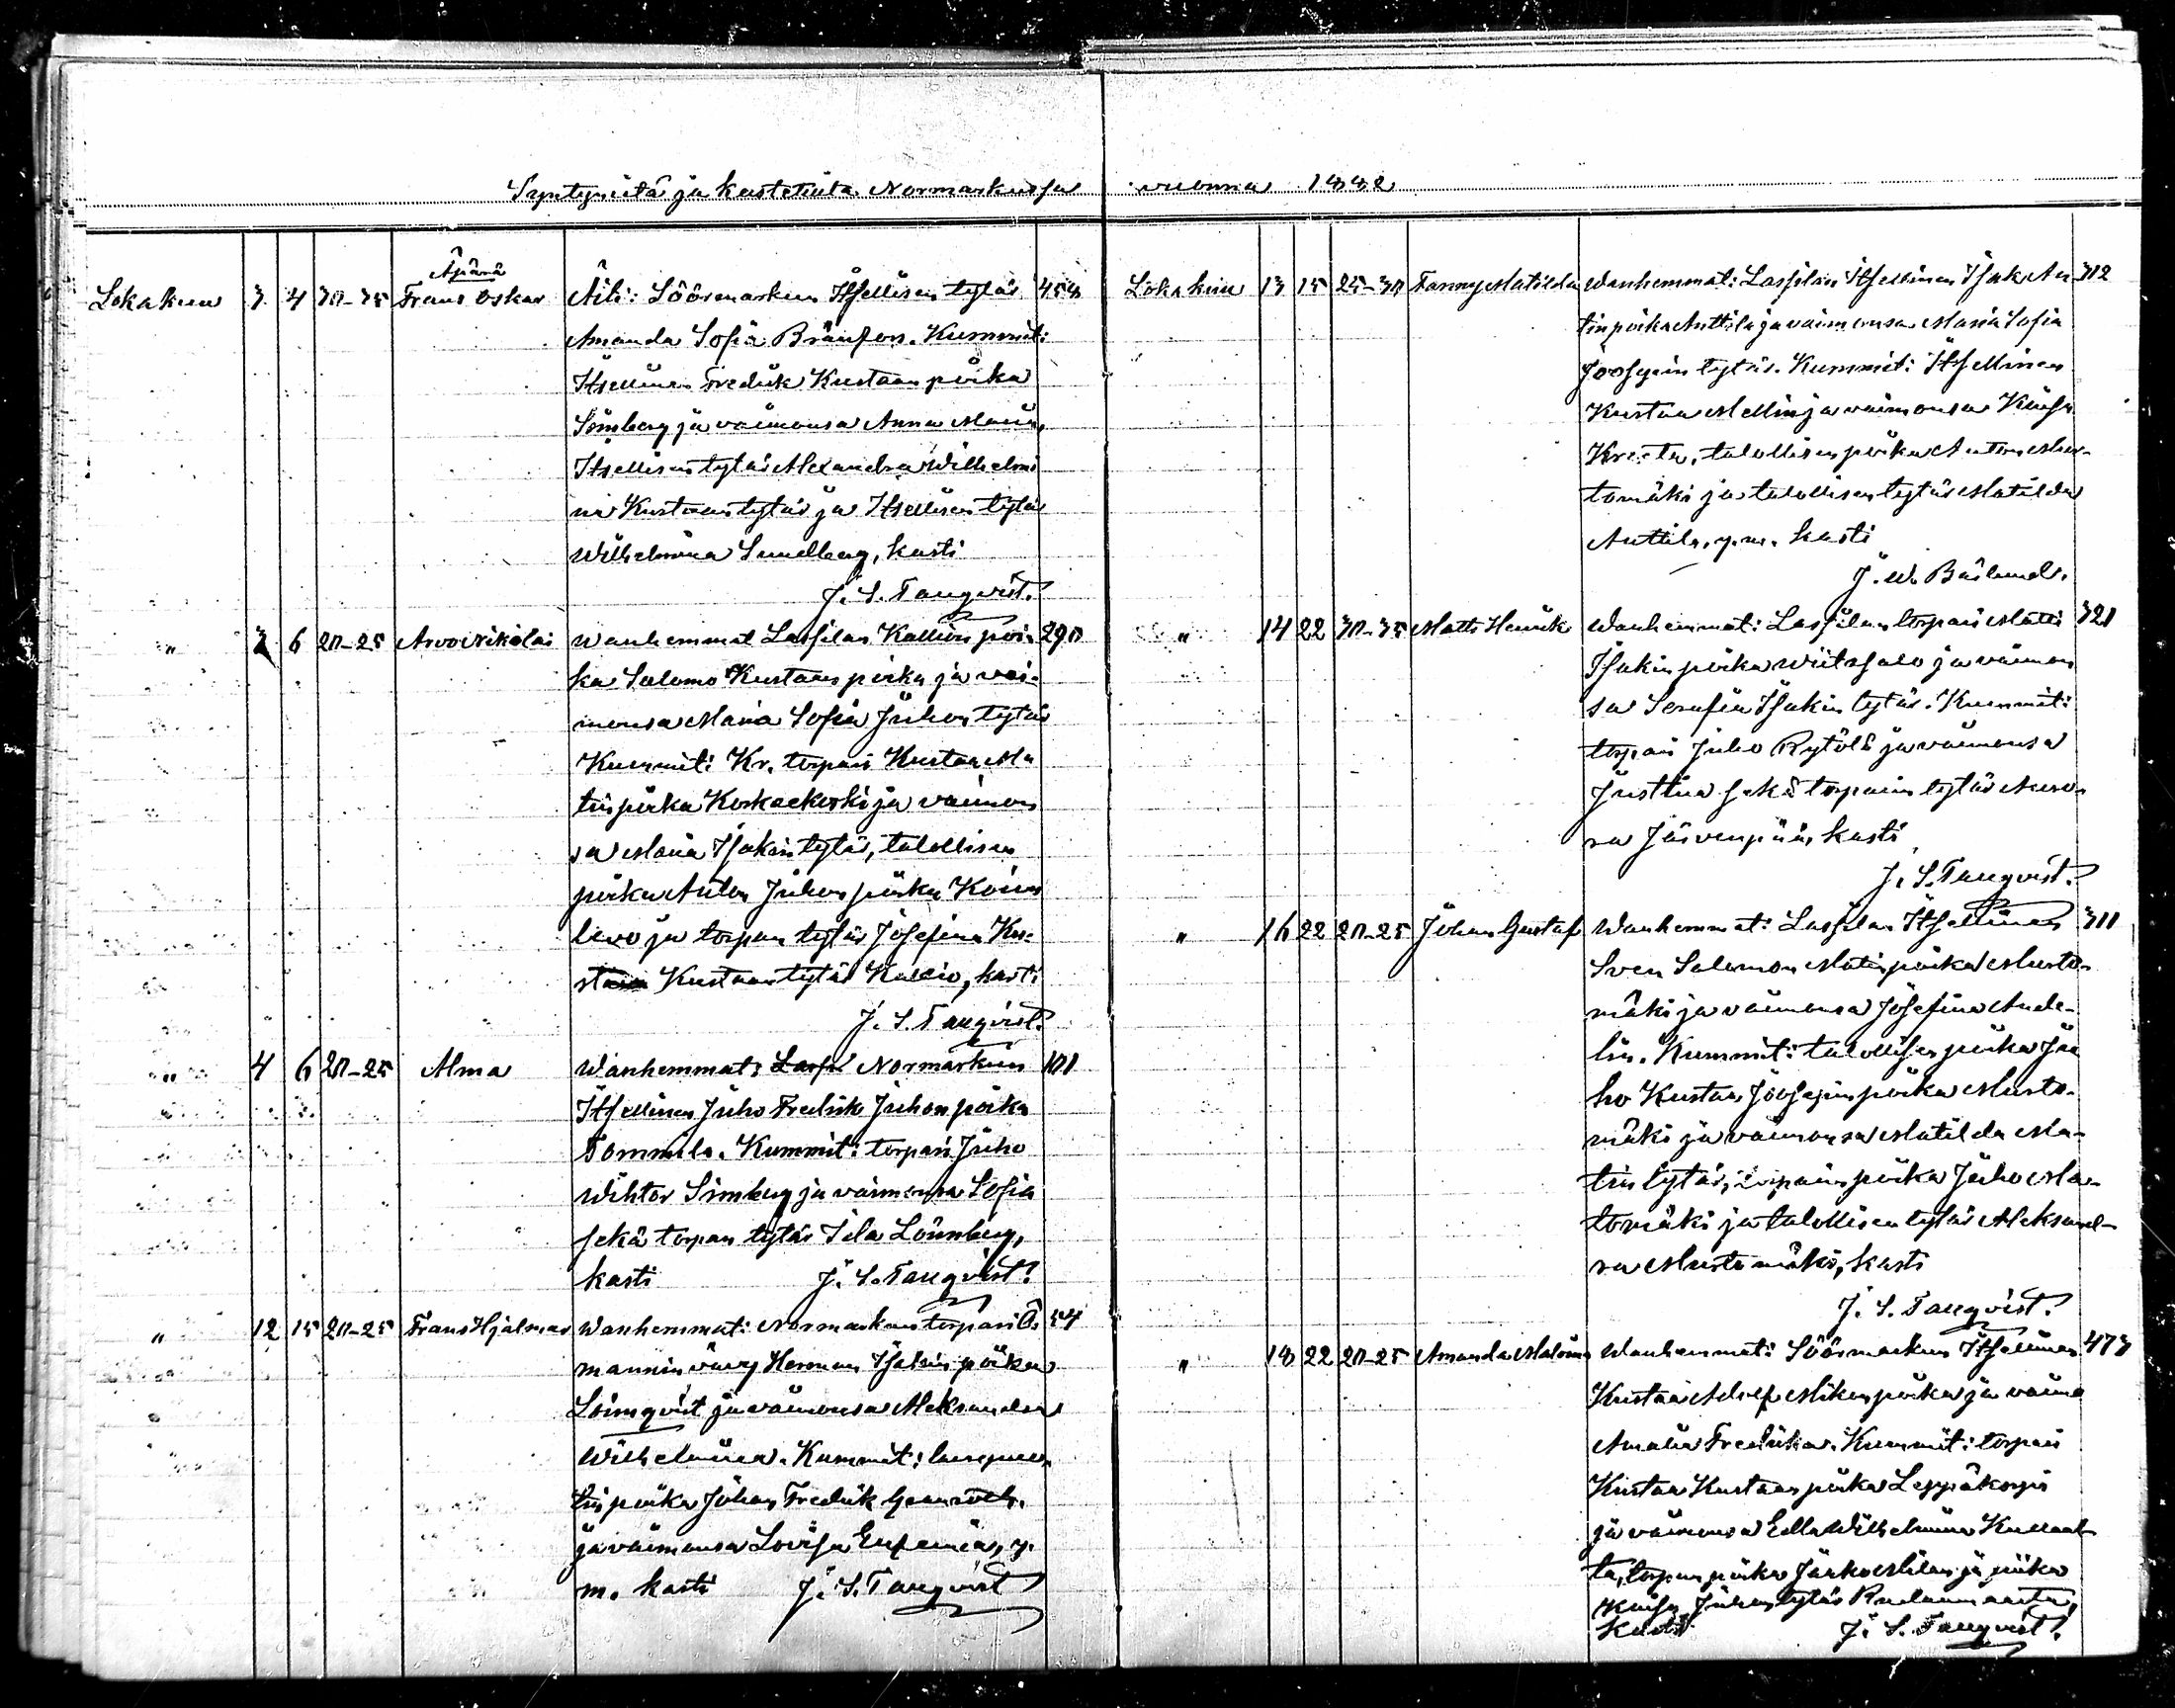 Syntyneitä ja kastetuita Normarkussa vuonna 1882
Äpärä
Lokakuu 3 4 30-35 Frans Oskar Äiti: Söörmarkun Itsellisen tytär 458
Amanda Sofia Kummit:
Itsellinen Fredrik Kustaan poika
ja vaimonsa Anna Maria,
Itsellisen tytär Alexandra Wilhelmi
na Kustaan tytär ja Itsellisen tytär
Wilhelmina Sundberg, kasti
J. S. Tanqvist.
" 3 6 20-25 Arvo Nikolai Wanhemmat Lassilan Kallion poi-
290
ka Salomo Kustaan poika ja vai-
monsa Maria Sofia Juhon tytär
Kummit: Kr. torpari Kustaa Ma
tin poika Koskaekoski ja vaimon
sa Maria Isakin tytär, talollisen
poika Anton Juhon poika
ja torpan tytär Josefina Ku-
Kustaan tytär Kallio, kasti
J. S. Tanqvist.
" 4 6 20-25 Alma Wanhemmat: Normarkun 101
Itsellinen Juho Fredrik Juhon poika
Tommila. Kummit: torpari Juho
Wihtor Simberg ja vaimonsa Sofia
sekä torpan tytär Lönnberg,
kasti J. S. Tanqvist.
" 12 15 20-25 Frans Hjalmar Wanhemmat: Normarkun torpari 54
mannin vävy Herman Isakin poika
Lönnqvist ja vaimonsa Aleksandra
Wilhelmina. Kummit:
tin poika Johan Fredrik
ja vaimonsa Lovisa Eufemia, y.
m. kasti J. S. Tanqvist
Lokakuu 13 15 25-30 Fanny Matilda Wanhemmat: Lassilan Itsellinen Isak An 312
tin poika Anttila ja vaimonsa Maria Sofia
Joosepin tytär. Kummit: Itsellinen
Kustaa Mellin ja vaimonsa Kaisa
Kreeta, talollisen poika Anton Mus-
tomäki ja talollisen tytär Matilda
Anttila, y.m. kasti
J. W. Bärlund.
" 14 22 30-35 Matts Henrik Wanhemmat: Lassilan torpari Matti 321
Isakin poika Wiitasalo ja vaimon
sa Serafia Isakin tytär. Kummit:
torpari Juho Rytölä ja vaimonsa
Justiina sekä torparin tytär Auro-
ra Järvenpää, kasti
J. S. Tanqvist.
" 16 22 20-25 Johan Gustaf Wanhemmat: Lassilan Itsellinen 311
Sven Salomon Matin poika Musto-
mäki ja vaimonsa Josefina Ande-
lin. Kummit: talollisen poika Ju
ho Kustaa Joosepin poika Musto-
mäki ja vaimonsa Matilda Ma-
tin tytär, torparin poika Juho Ma-
tomäki ja talollisen tytär Aleksand-
ra Mustomäki, kasti
J. S. Tanqvist.
" 18 22 20-25 Amanda Malvina Wanhemmat: Söörmarkun Itsellinen 473
Kustaa Adolf Mikon poika ja vaimo
Amalia Fredrika. Kummit: torpari
Kustaa Kustaan poika Leppäkorpi
ja vaimonsa Edla Wilhelmina Kullaal
ta, torpan poika ja piika
Kaisa Juhon tytär
kasti J. S. Tanqvist.